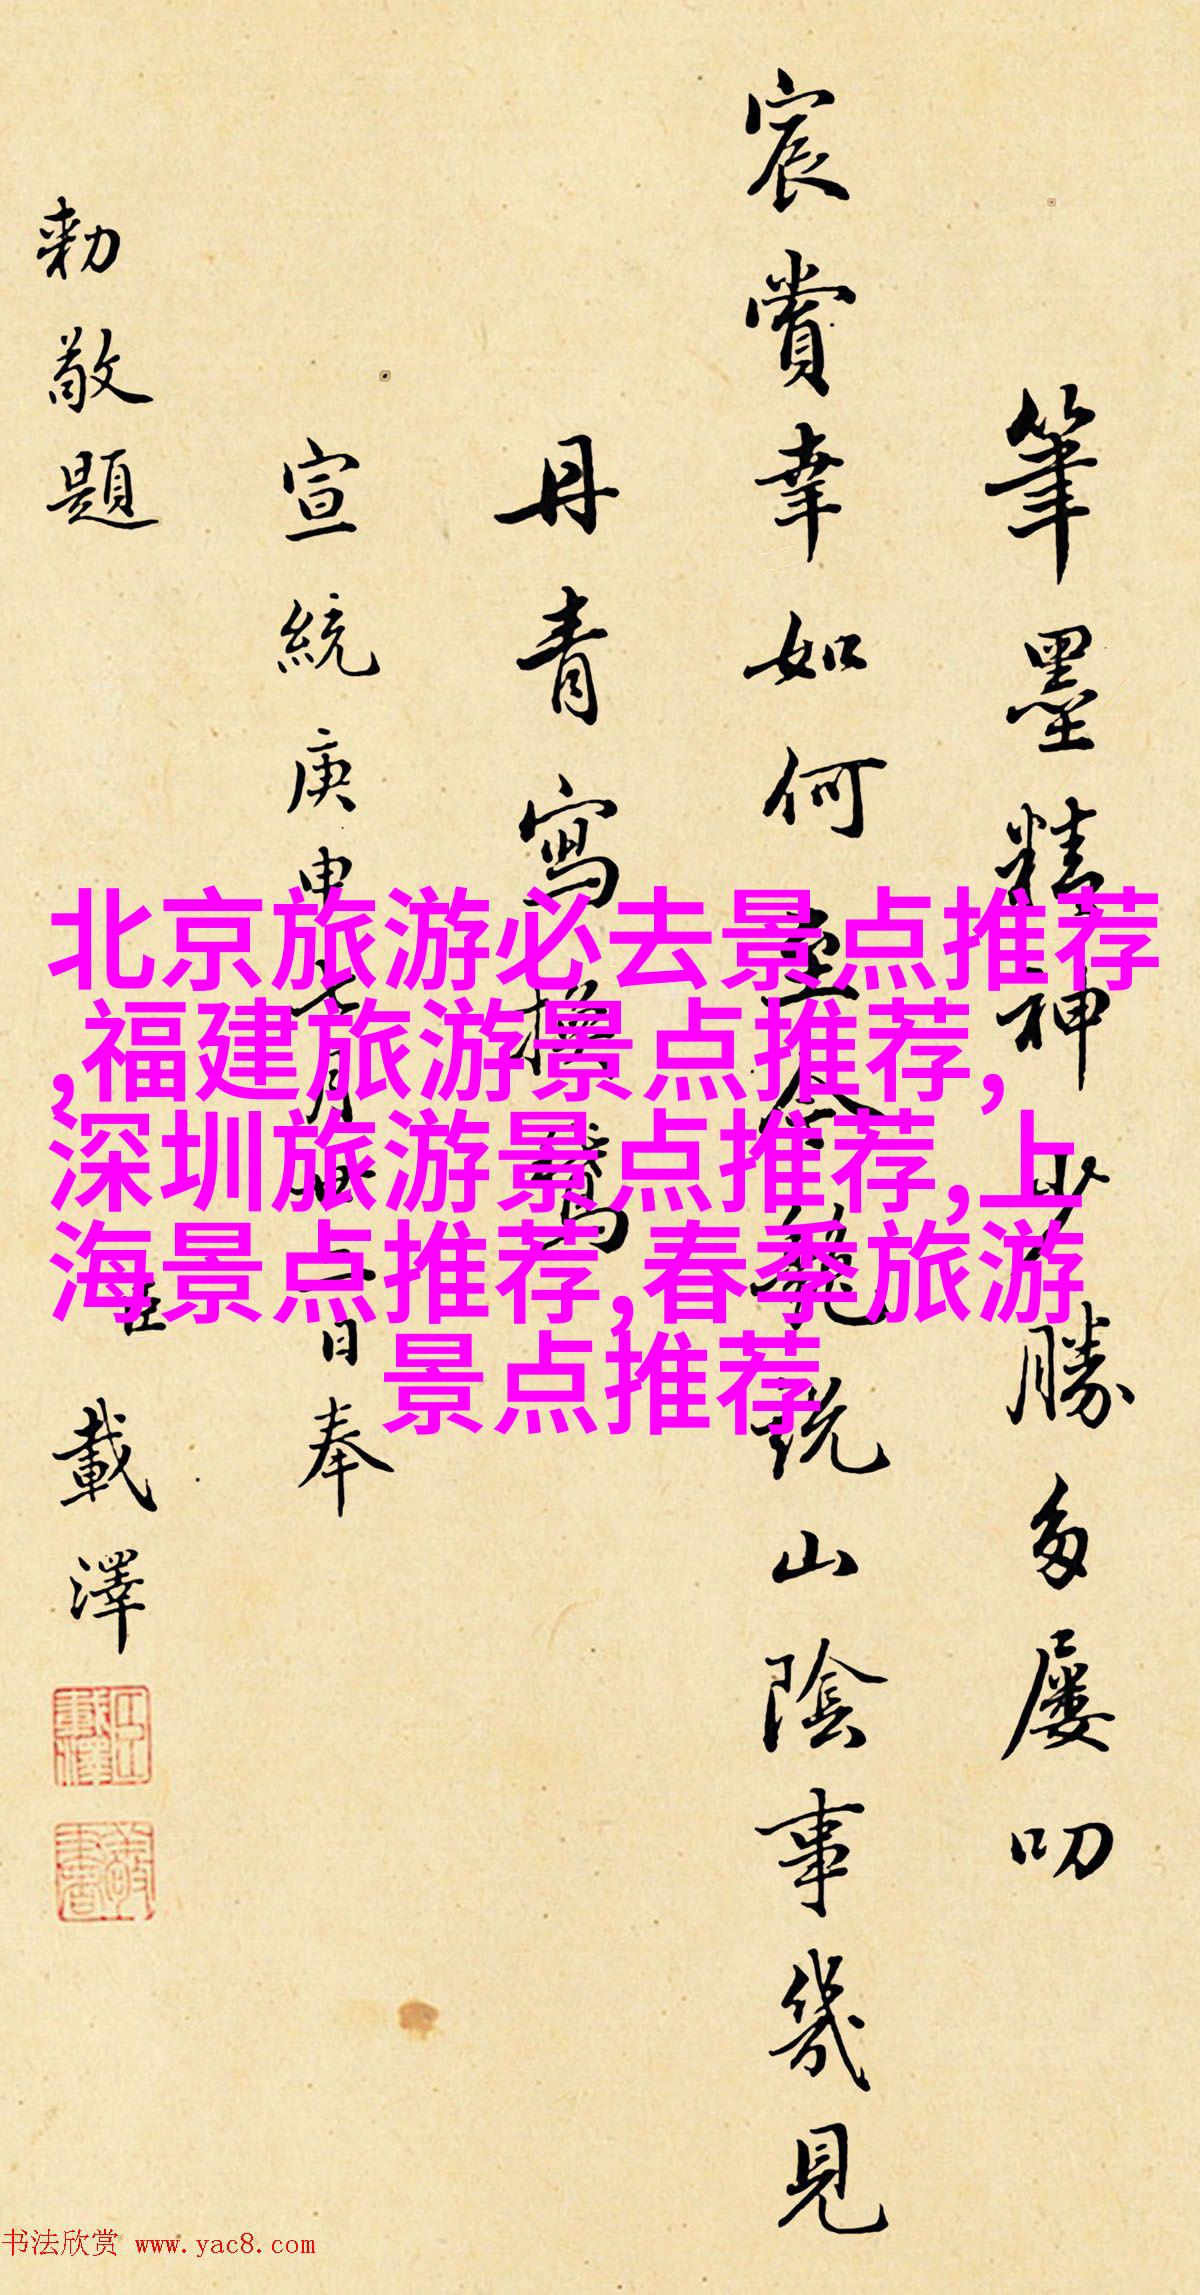 筆墨精神少勝多屢叨
宸賞幸如何 說山陰事幾見
丹青寫換鵞
宣統庚申七月廿二日奉
勅敬題 臣載澤
北京旅游必去景点推荐
,福建旅游景点推荐,
深圳旅游景点推荐,上
海景点推荐,春季旅游
景点推荐
书法欣赏 www.yac8.com